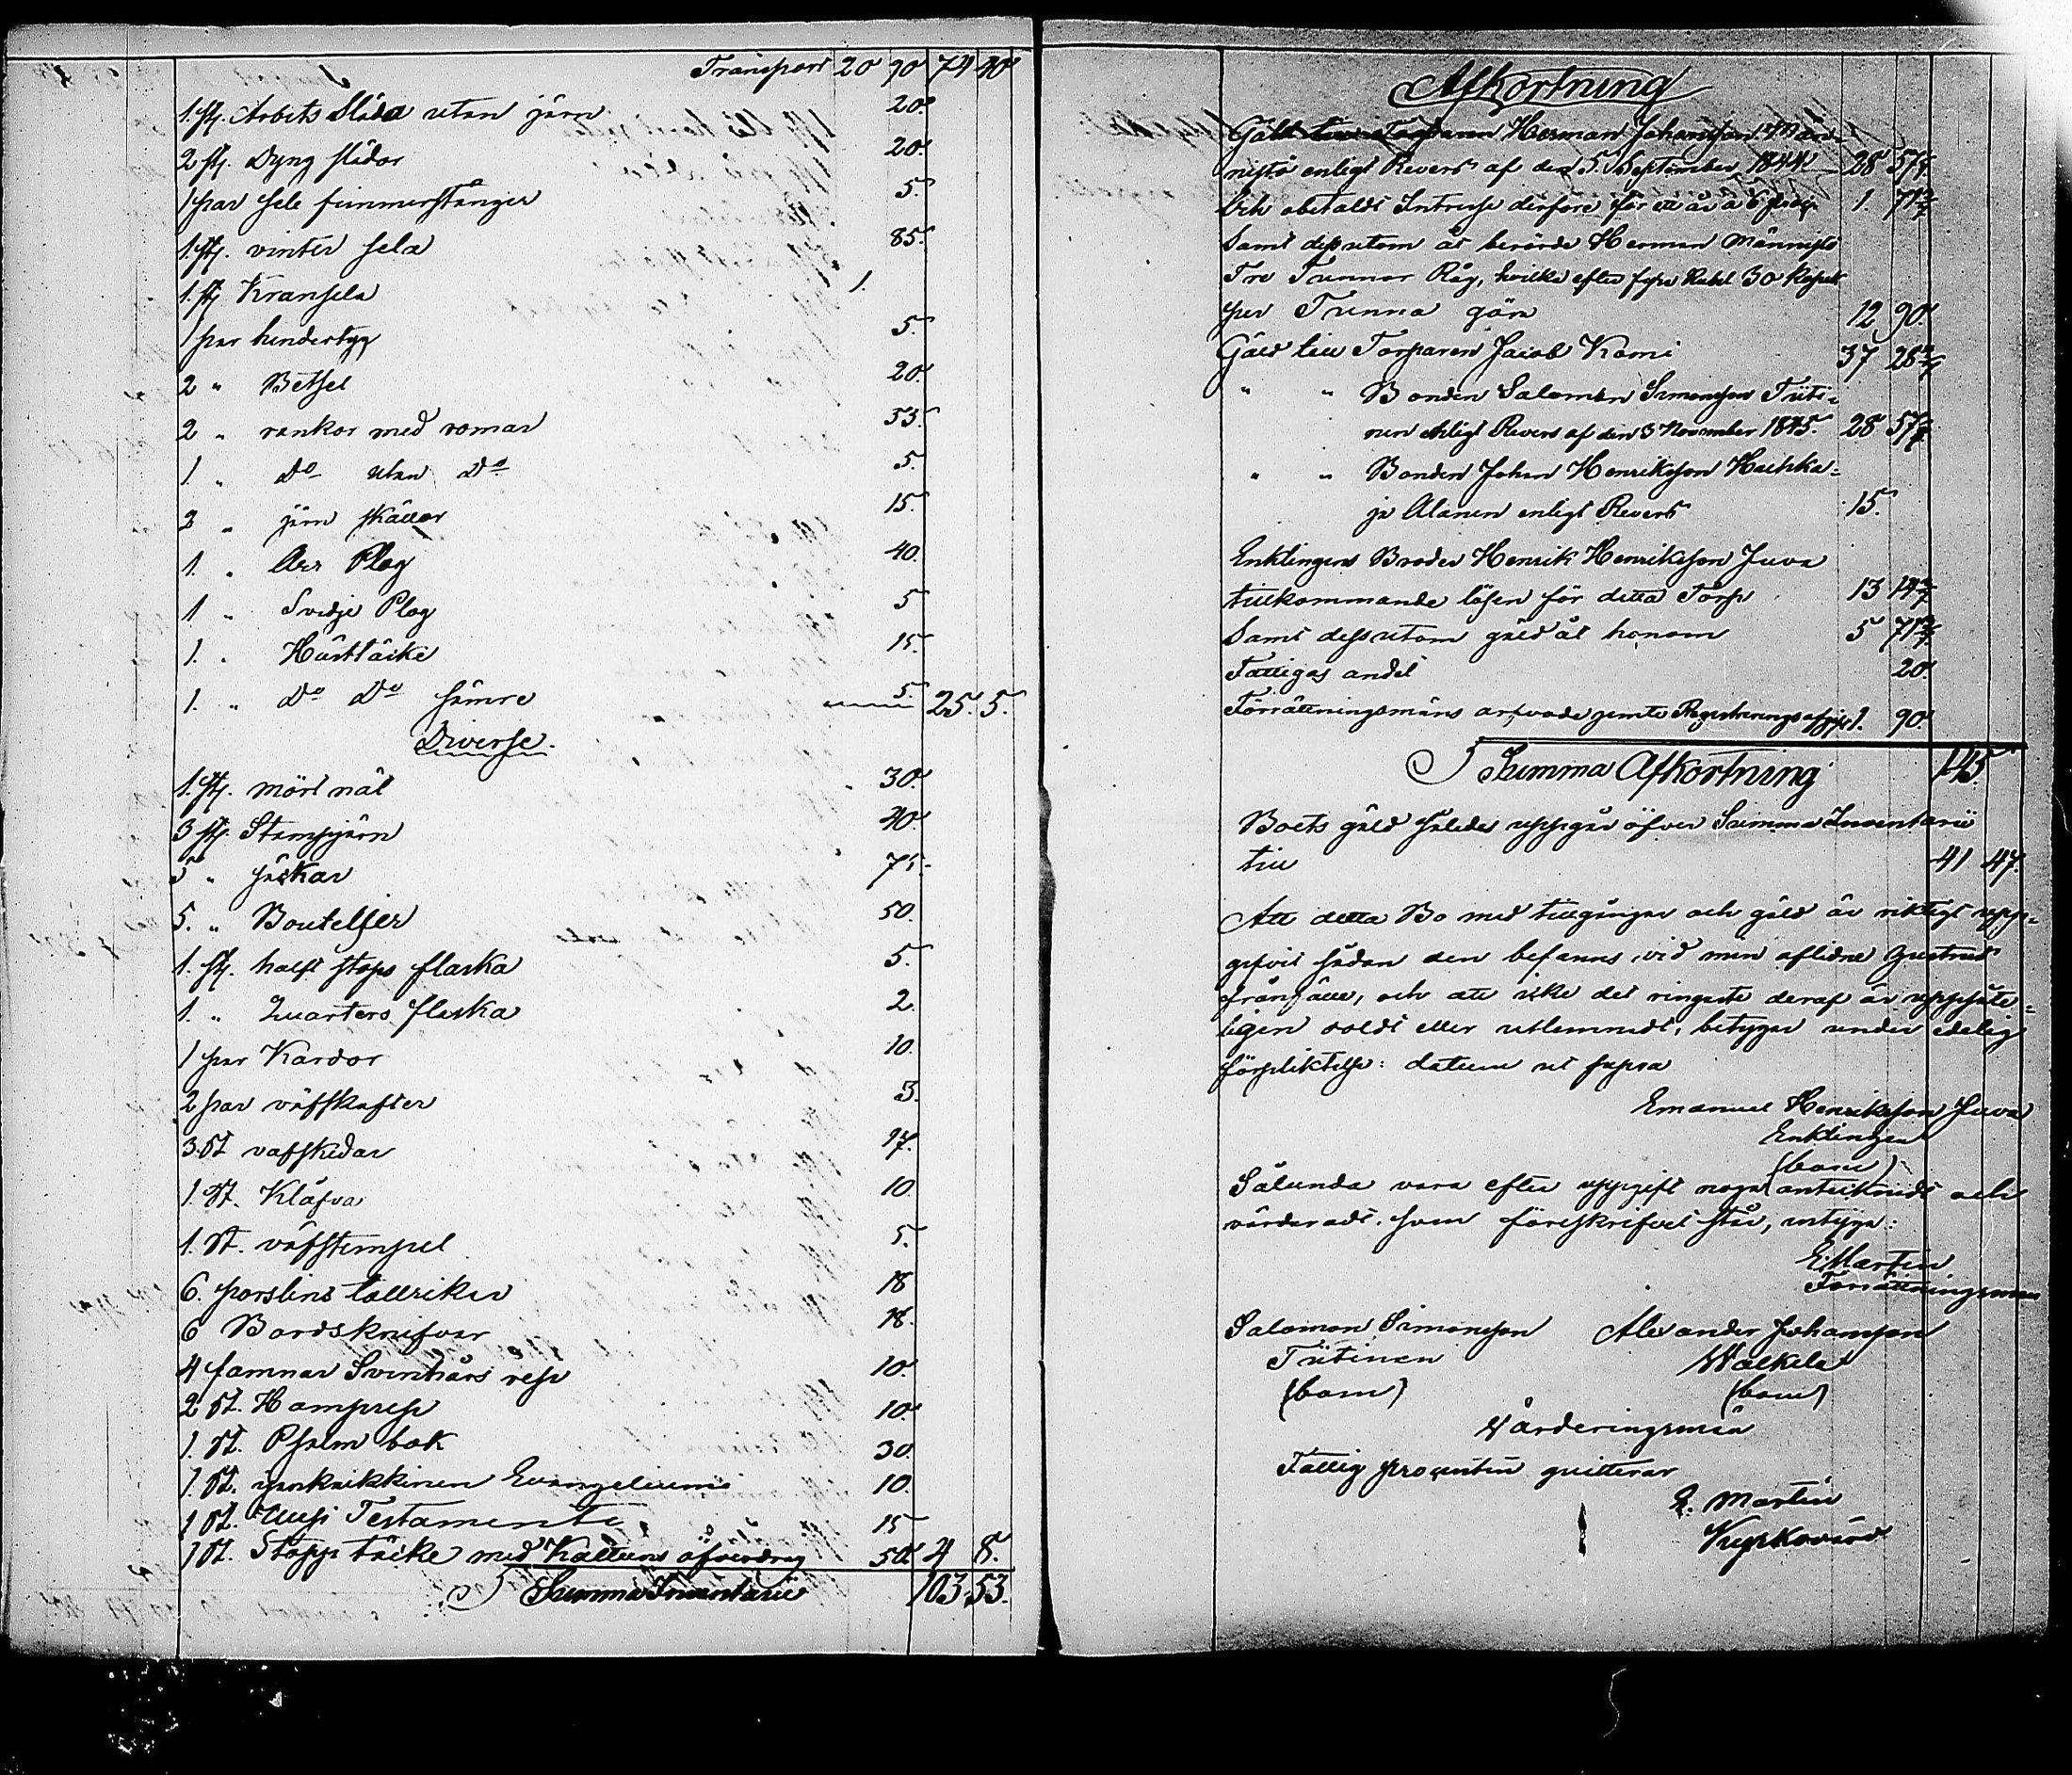 Transport 20 90 74 40
1. st. Arbets Släda utan järn 20.
2 st. Dyng slädor 20.
1 par sele fimmerstänger 5.
1. st. vinter sela 85.
1. st. Kransela 1.
1 par hindertyg 5.
2 " Betsel 20.
2 " rankor med romar 53.
1 " Do utan Do 5.
2 " järn skällor 15.
1. " Arr Plog 40.
1 " Svedje Plog 5
1. " Hästtäcke 15.
1. " Do Do sämre 5. 25. 5.
Diverse.
1. st. mört nät 30.
3 st. Stampjärn 40.
5 " säckar 75.
5. " Boutelljer 50.
1. st. halft stops flaska 5.
1. " Quarters flaska 2.
1 par Kardor 10.
2 parväfskafter 3.
3. st vafskedar 17.
1. st. Kläfva 10.
1. st. väfstempel 5.
6. porslins tallrikar 18
6 Bordsknifvar 18.
4 famnar Svinhårs rep 10.
2 st. Hamprep 10.
1. st. Psalm bok 30.
1. st. Evangeliumi 10.
1 st. Uusi Testamenti 15
1 st. Stopp täcke med Kattuns öfverdrag 50. 4 8.
Summa Inventarie 103. 53.
Afkortning
Gäld till Torparen Herman Johansson Män-
nistö enligt Revers af den 5 September 1844 28 57 1/7
Och obetaldt Intresse derföre för ett år à 6 proc. 1. 71 3/7
Samt dessutom åt berörde Herman Männistö
Tre Tunnor Råg, hvilka efter fyra Rubel 30 kopek
per Tunna göra 12 90.
Gäld till Torparen Jacob Komi 37 28 4/7
" " Bonden Salomon Simonsson Tüti-
nen enligt Revers af den 3 November 1845. 28 57 1/7
" " Bonden Johan Henriksson Hachka-
ja Alanen enligt Revers 15.
Enklingens Broder Henrik Henriksson Juva
tillkommande lösen för detta Torp 13 14 2/7
Samt dessutom gäld åt honom 5 71 3/7
Fattigas andel 20.
Förrättningsmäns arfvode jemte Registreringsafgift 1. 90.
Summa Afkortning 145
Boets gäld således uppgår öfver Summa Inventarii
till 41 47.
Att detta Bo med tillgångar och gäld är riktigt upp-
gifvit sådan den befanns vid min aflidne hustrus
frånfälle, och att icke det ringaste deraf är uppsåte-
ligen doldt eller utlemnadt, betygar under edelig
förpliktelse: datum ut supra
Emanuel Henriksson Juva
Enklingen
(bom)
Sålunda vara efter uppgift noga antecknadt och
värderadt, som föreskrifvet står, intyga:
E Martin
Förrättningsman
Salomon Simonsson Alexander Johansson
Tütinen Walkila
(bom) (bom)
Värderingsmän
Fattig procenten quitterar
E. Martin
Kyrkovärd